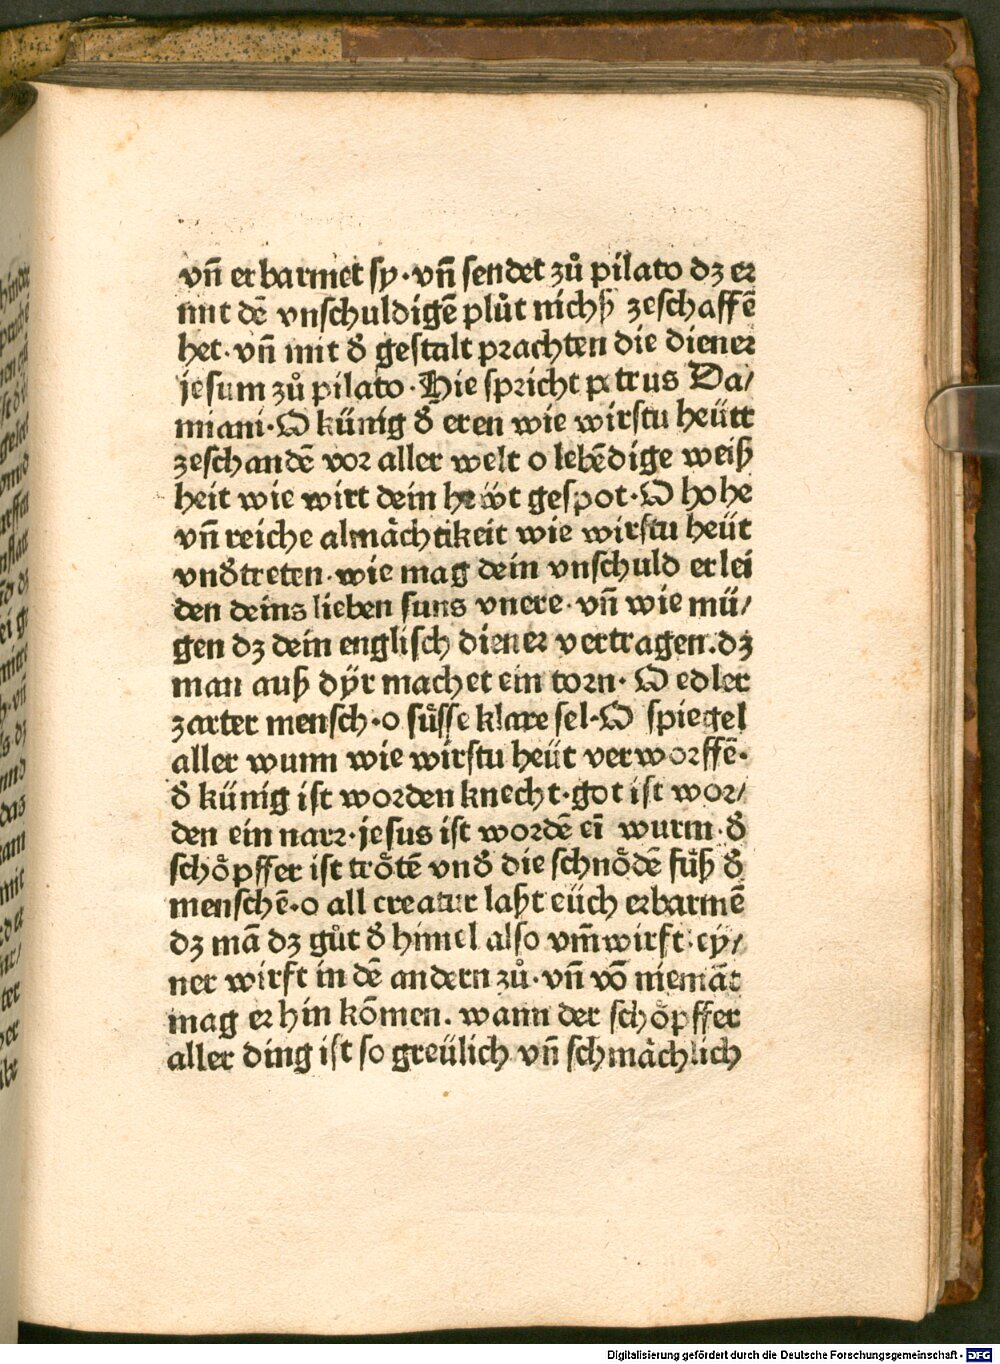 vn̄ erbarmet sy·vn̄ sendet zů pilato dz er
mit dē vnschuldigē plůt nichß zeschaffē
het·vn̄ mit d̄ gestalt prachten die diener
jesum zů pilato·Hie spricht petrus Da/
miani·O künig d̄ eren wie wirstu heütt
zeschandē vor aller welt o lebēdige weiß
heit wie wirt dein heẅt gespot·O hohe
vn̄ reiche almåchtikeit wie wirstu heüt
vnd̄treten·wie mag dein vnschuld erlei
den deins lieben suns vnere·vn̄ wie mü/
gen dz dein englisch diener vertragen.dz
man auß dÿr machet ein torn·O edler
zarter mensch·o sůsse klare sel·O spiegel
aller wunn wie wirstu heüt verworffē·
d̄ künig ist worden knecht·got ist wor/
den ein narr·jesus ist wordē eī wurm·d̄
schöpffer ist trötē vnd̄ die schnödē füß d̄
menschē·o all creatur laßt eüch erbarmē
dz mā dz gůt d̄ himel also vm̄wirft·ey/
ner wirft in dē andern zů·vn̄ vō niemāt
mag er hin kōmen. wann der schöpffer
aller ding ist so greülich vn̄ schmåchlich
Digitalisierung gefördert durch die Deutsche Forschungsgemeinschaft - DFG